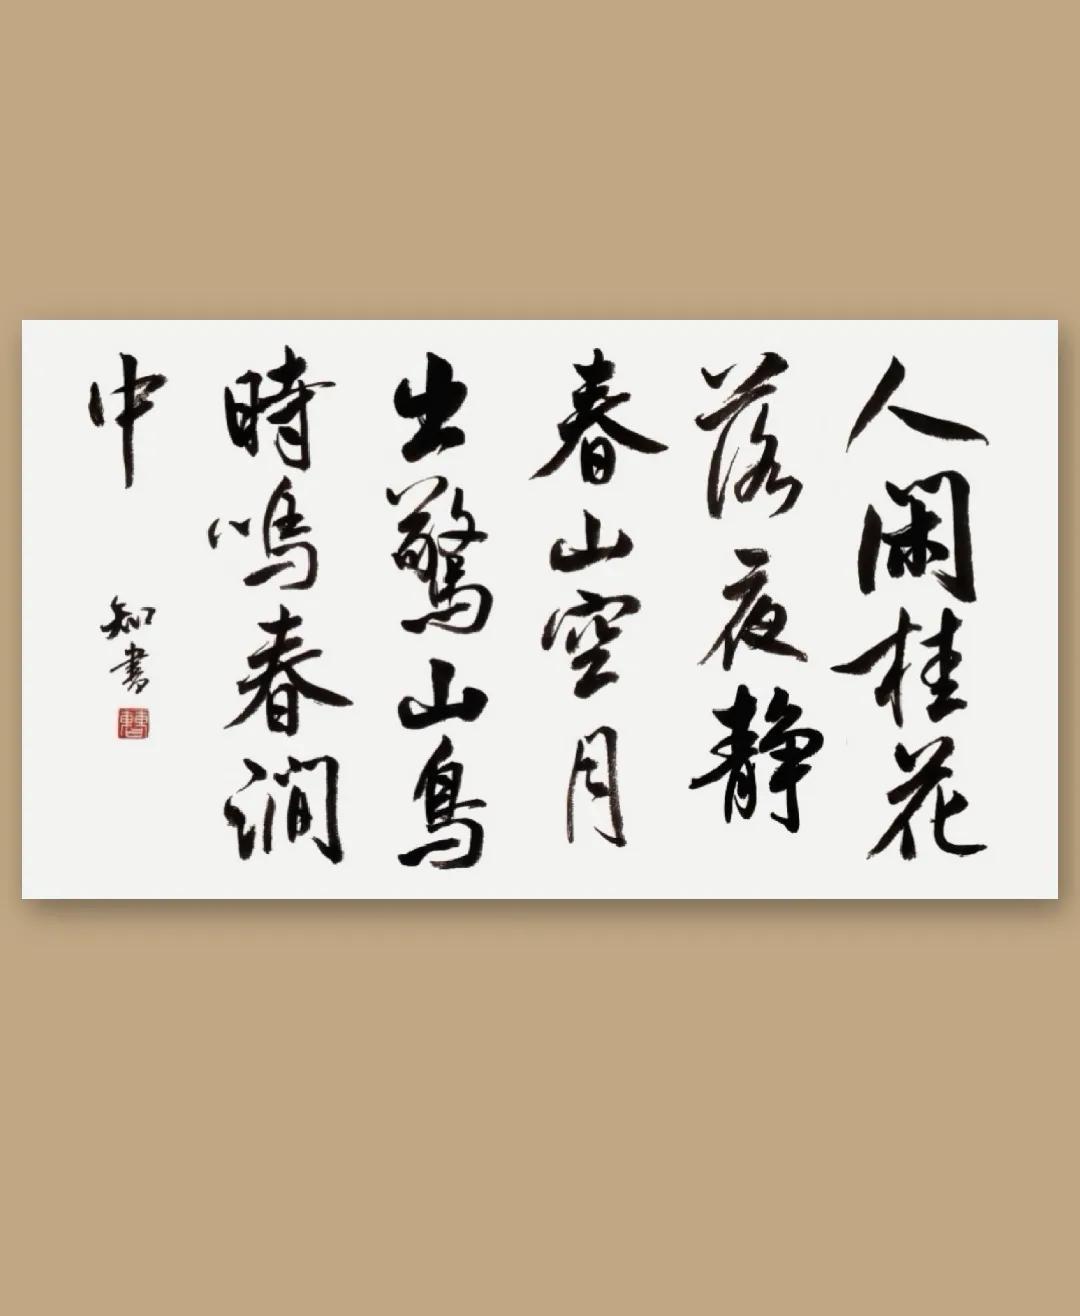 人閑桂花
落夜静
春山空月
出驚山鳥
時鳴春澗
中
知書